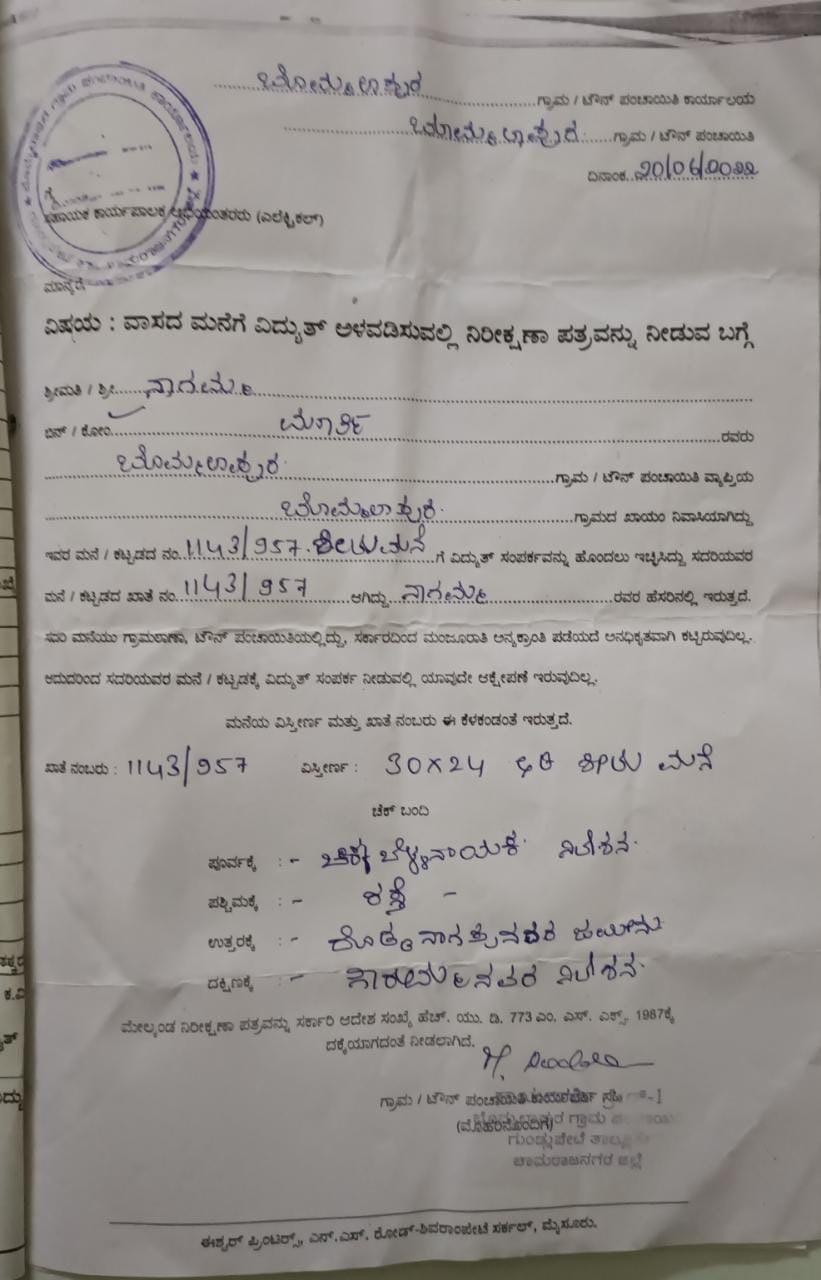 ಬೊಮ್ಮಲಾಪುರ ಗ್ರಾಮ / ಟೌನ್ ಪಂಚಾಯಿತಿ ಕಾರ್ಯಾಲಯ
ಬೊಮ್ಮಲಾಪುರ ಗ್ರಾಮ / ಟೌನ್ ಪಂಚಾಯಿತಿ
ದಿನಾಂಕ 20/06/2022
ಸಹಾಯಕ ಕಾರ್ಯಪಾಲಕ ಅಭಿಯಂತರರು (ಎಲೆಕ್ಟ್ರಿಕಲ್)
ಮಾನ್ಯರೆ
ವಿಷಯ : ವಾಸದ ಮನೆಗೆ ವಿದ್ಯುತ್ ಅಳವಡಿಸುವಲ್ಲಿ ನಿರೀಕ್ಷಣಾ ಪತ್ರವನ್ನು ನೀಡುವ ಬಗ್ಗೆ
ಶ್ರೀಮತಿ / ಶ್ರೀ ನಾಗಮ್ಮ
ಬಿನ್ / ಕೋಂ ಮೂರ್ತಿ ರವರು
ಬೊಮ್ಮಲಾಪುರ ಗ್ರಾಮ / ಟೌನ್ ಪಂಚಾಯಿತಿ ವ್ಯಾಪ್ತಿಯ
ಬೊಮ್ಮಲಾಪುರ ಗ್ರಾಮದ ಖಾಯಂ ನಿವಾಸಿಯಾಗಿದ್ದು
ಇವರ ಮನೆ / ಕಟ್ಟಡದ ನಂ. 1143/957 ಶೀಟುಮನೆ ಗೆ ವಿದ್ಯುತ್ ಸಂಪರ್ಕವನ್ನು ಹೊಂದಲು ಇಚ್ಛಿಸಿದ್ದು ಸದರಿಯವರ
ಮನೆ / ಕಟ್ಟಡದ ಖಾತೆ ನಂ. 1143/957 ಆಗಿದ್ದು ನಾಗಮ್ಮ ರವರ ಹೆಸರಿನಲ್ಲಿ ಇರುತ್ತದೆ.
ಸದರಿ ಮನೆಯು ಗ್ರಾಮಠಾಣಾ, ಟೌನ್ ಪಂಚಾಯಿತಿಯಲ್ಲಿದ್ದು, ಸರ್ಕಾರದಿಂದ ಮಂಜೂರಾತಿ ಅನ್ಯಕ್ರಾಂತಿ ಪಡೆಯದೆ ಅನಧಿಕೃತವಾಗಿ ಕಟ್ಟಿರುವುದಿಲ್ಲ.
ಆದುದರಿಂದ ಸದರಿಯವರ ಮನೆ / ಕಟ್ಟಡಕ್ಕೆ ವಿದ್ಯುತ್ ಸಂಪರ್ಕ ನೀಡುವಲ್ಲಿ ಯಾವುದೇ ಆಕ್ಷೇಪಣೆ ಇರುವುದಿಲ್ಲ.
ಮನೆಯ ವಿಸ್ತೀರ್ಣ ಮತ್ತು ಖಾತೆ ನಂಬರು ಈ ಕೆಳಕಂಡಂತೆ ಇರುತ್ತದೆ.
ಖಾತೆ ನಂಬರು : 1143/957 ವಿಸ್ತೀರ್ಣ : 30×24 ಅಡಿ ಶೀಟು ಮನೆ
ಚೆಕ್ ಬಂದಿ
ಪೂರ್ವಕ್ಕೆ :- ಚಿಕ್ಕಬೆಳ್ಳನಾಯಕ ನಿವೇಶನ
ಪಶ್ಚಿಮಕ್ಕೆ :- ರಸ್ತೆ -
ಉತ್ತರಕ್ಕೆ :- ದೊಡ್ಡನಾಗಪ್ಪನವರ ಜಮೀನು
ದಕ್ಷಿಣಕ್ಕೆ :- ನಿವೇಶನ
ಮೇಲ್ಕಂಡ ನಿರೀಕ್ಷಣಾ ಪತ್ರವನ್ನು ಸರ್ಕಾರಿ ಆದೇಶ ಸಂಖ್ಯೆ ಹೆಚ್. ಯು. ಡಿ. 773 ಎಂ. ಎಸ್. ಎಕ್ಸ್. 1987ಕ್ಕೆ
ದಕ್ಕೆಯಾಗದಂತೆ ನೀಡಲಾಗಿದೆ.
ಗ್ರಾಮ / ಟೌನ್ ಪಂಚಾಯಿತಿ
(ಮೊಹರಿನೊಂದಿಗೆ)
ಬೊಮ್ಮಲಾಪುರ ಗ್ರಾಮ
ಗುಂಡ್ಲುಪೇಟೆ ತಾಲ್ಲೂಕು
ಚಾಮರಾಜನಗರ ಜಿಲ್ಲೆ
ಈಶ್ವರ್ ಪ್ರಿಂಟರ್ಸ್, ಎನ್.ಎಸ್. ರೋಡ್-ಶಿವರಾಂಪೇಟೆ ಸರ್ಕಲ್, ಮೈಸೂರು.